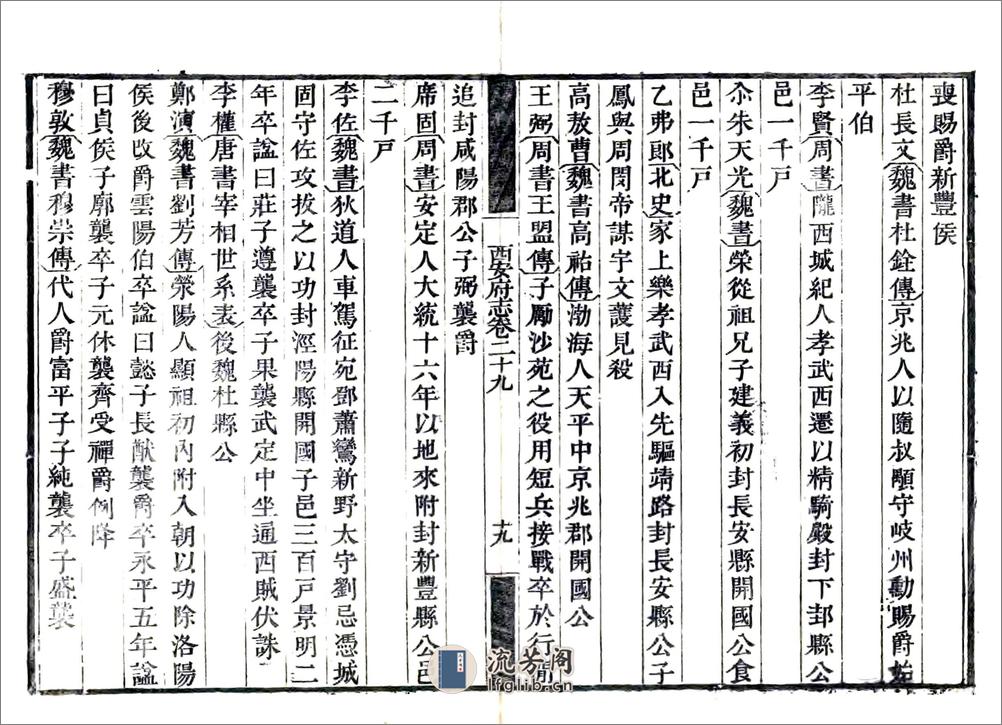 喪賜爵新豐侯
杜長文魏書杜銓傳京兆人以隨叔顒守岐州勳賜爵始
平伯
李賢周書隴西城紀人孝武西遷以精騎殿封下邽縣公
邑一千戸
尒朱天光魏書榮從祖兄子建義初封長安縣開國公食
邑一千戸
乙弗郎北史家上樂孝武西入先驅靖路封長安縣公子
鳳與周閔帝謀宇文護見殺
高敖曹魏書高祐傳渤海人天平中京兆郡開國公
王弼周書王盟傳子勵沙苑之役用短兵接戰卒於行前
西安府志卷二十九
十九
追封咸陽郡公子弼襲爵
席固周書安定人大統十六年以地來附封新豐縣公邑
二千戸
李佐魏書狄道人車駕征宛鄧蕭鸞新野太守劉忌憑城
固守佐攻拔之以功封涇陽縣開國子邑三百戸景明二
年卒諡曰莊子遵襲卒子果襲武定中坐通西賊伏誅
李權唐書宰相世系表後魏杜縣公
鄭演魏書劉芳傳滎陽人顯祖初內附入朝以功除洛陽
侯後改爵雲陽伯卒諡曰懿子長猷襲爵卒永平五年諡
曰貞侯子廓襲卒子元休襲齊受禪爵例降
穆敦魏書穆崇傳代人爵富平子子純襲卒子盛襲
流芳閣
lfglib.cn